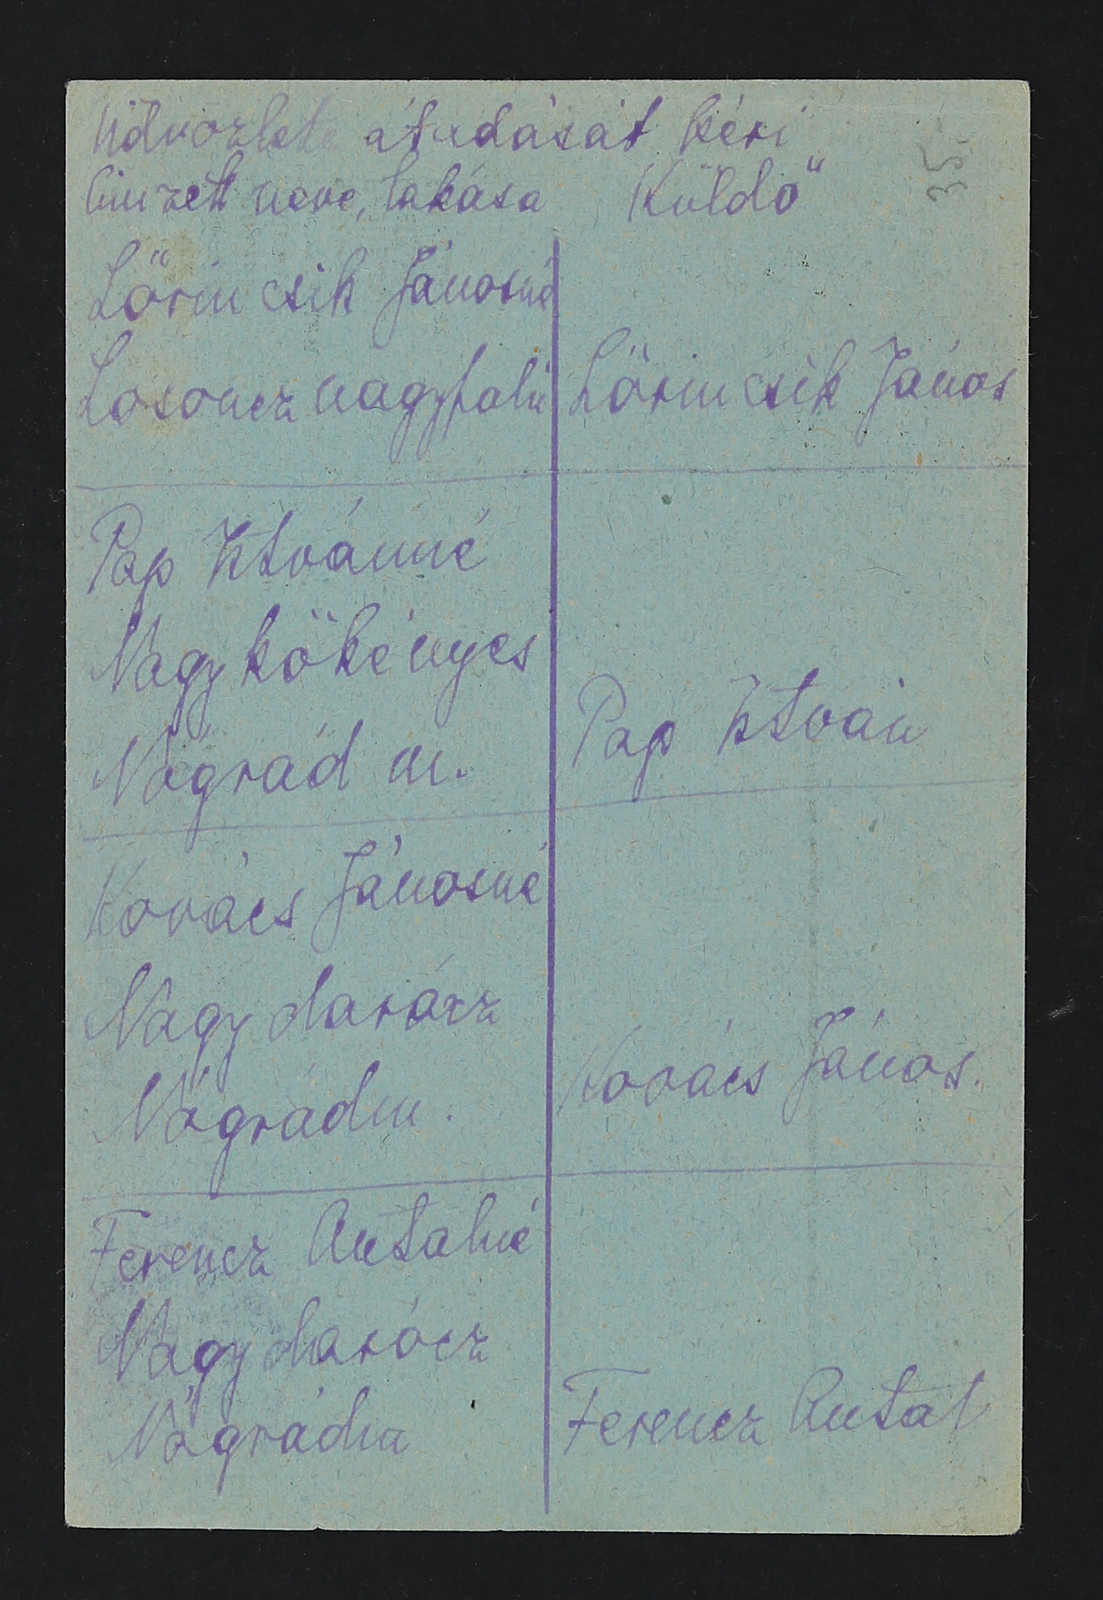 Üdvözlete átadását kéri
Címzett neve, lakása Küldő
35.-
Lőrincsik Jánosné
Losoncz nagyfalu
Lőrincsik János
Pap Istvánné
Nagykökényes
Nógrád m.
Pap István
Kovács Jánosné
Nagydarócz
Nógrádm.
Kovács János.
Ferencz Antalné
Nagydarócz
Nógrádm
Ferencz Antal